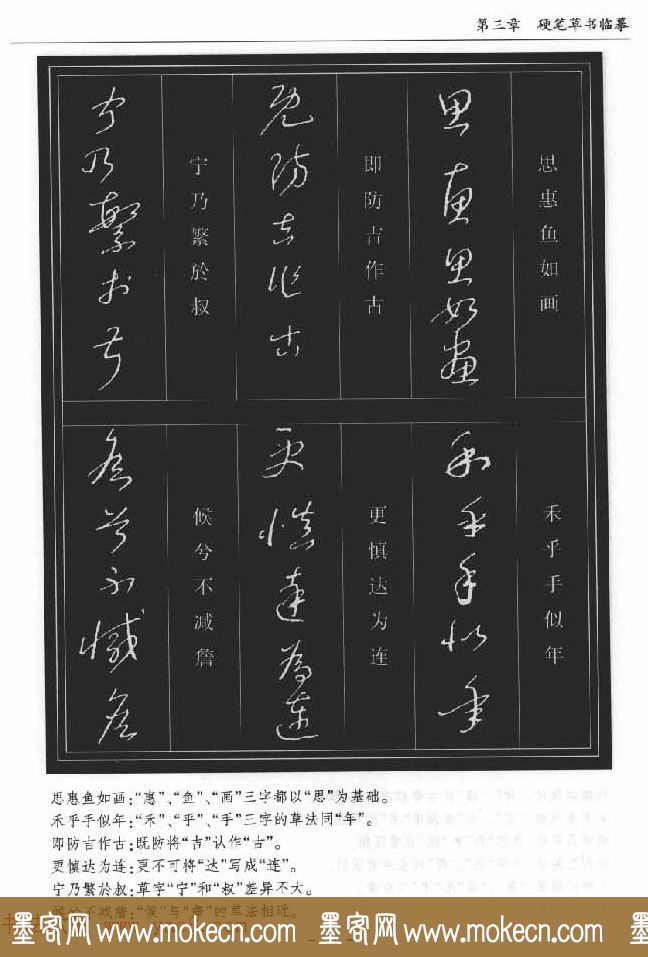 第三章 硬笔草书临摹
思惠鱼如画
即防吉作古
宁乃繁於叔
禾乎手似年
更慎达为连
候兮不减詹
思惠鱼如画:“惠”、“鱼”、“画”三字都以“思”为基础。
禾乎手似年:“禾”、“乎”、“手”三字的草法同“年”。
即防吉作古:既防将“吉”认作“古”。
更慎达为连:更不可将“达”写成“连”。
宁乃繁於叔:草字“宁”和“叔”差异不大。
候兮不减詹:“候”与“詹”的草法相近。
墨客网 www.mokecn.com 墨客网 www.mokecn.com